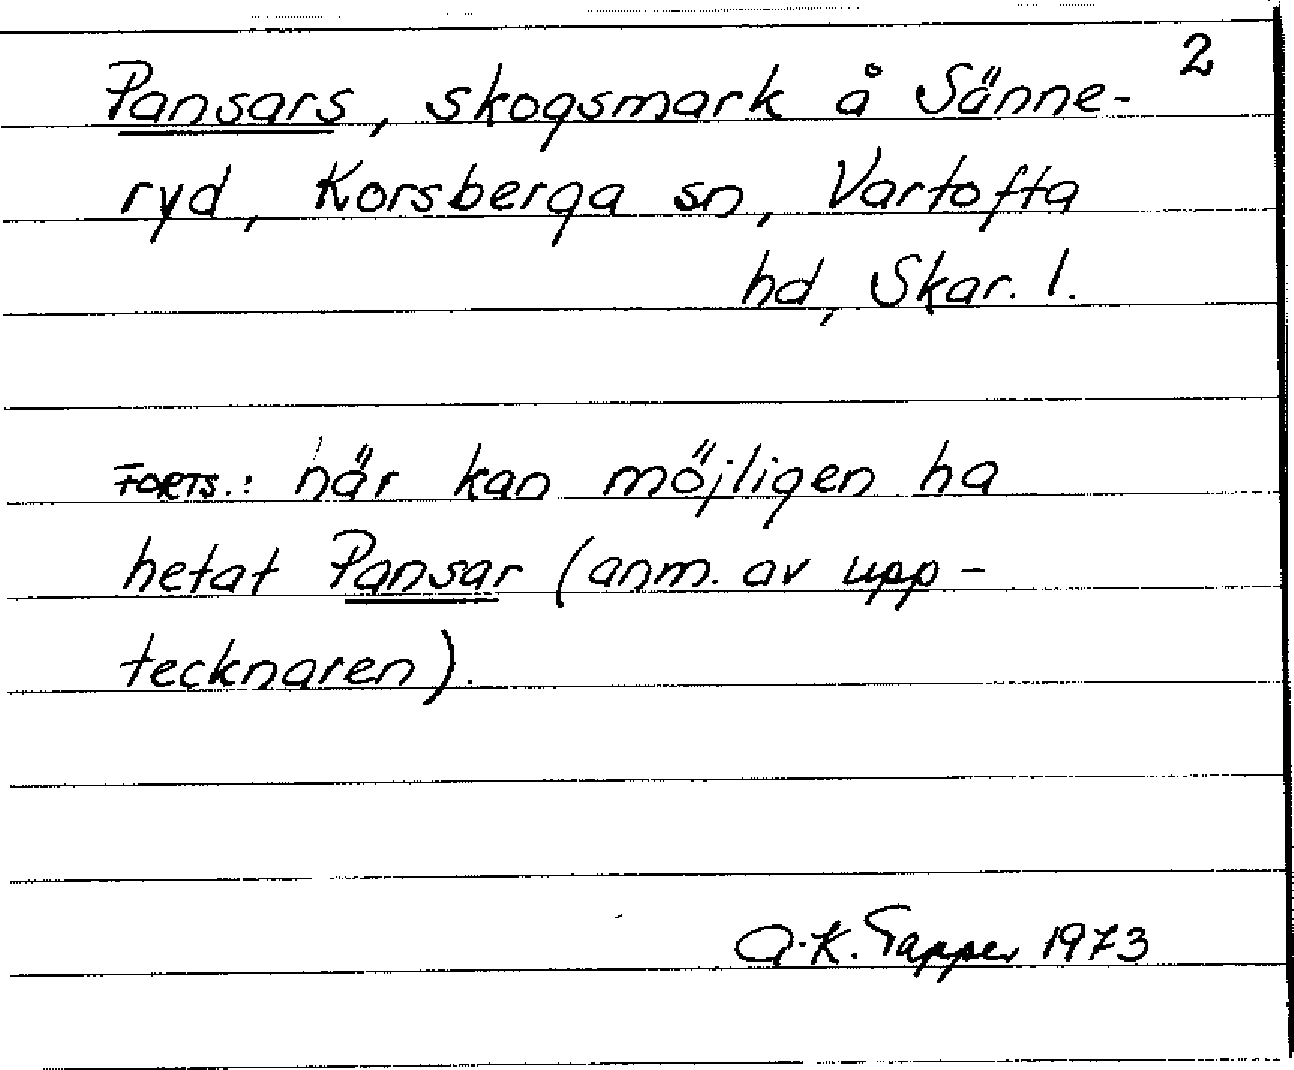 2
Pansars, skogsmark å Sänne-
ryd, Korsberga sn, Vartofta
hd, Skar. l.
FORTS.: här kan möjligen ha
hetat Pansar (anm. av upp-
tecknaren).
A-K. Tapper 1973